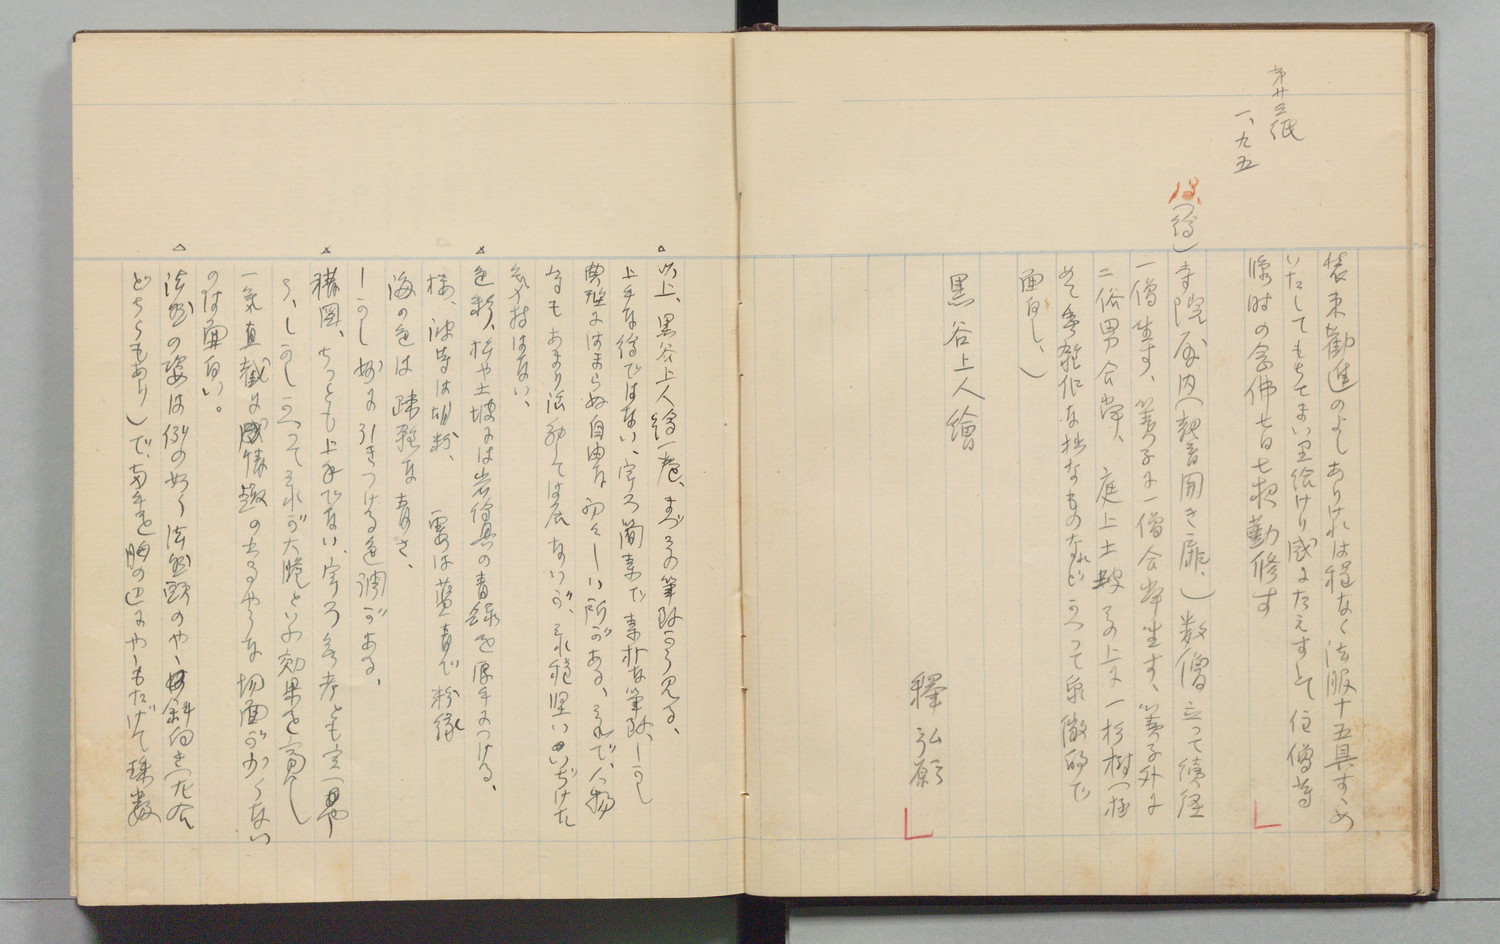 第廿三紙
一、九五
装束勧進のよしありければ程なく法服十五具すゝめ
いたしてもちてまい里給けり感にたえすとて住僧等
臨時の念佛七日七夜勤修す
は(繪)寺院屋内(観音開き扉、)数僧立って読経
一僧坐す、簀子に一僧合掌坐す、簀子外に
二俗男合掌、庭上土坡その上に一杉樹(極
めて粗雑化な拙なものなれどかへって象徴的で
面白し、)
黒谷上人繪
釋弘願
以上、黒谷上人繪一巻、まづその筆致から見る、
上手な繪ではない、寧ろ簡素で素朴な筆致、しかし
典型にはまらぬ自由な初々しい所がある、それで、人物
などもあまり活動しては居ないが、それ程堅いいぢけた
気持はない、
色彩、松や土坡には岩絵具の青緑を厚手につける、
様、波等は胡粉、雲は藍青で粉縁
海の色は疎雑な青さ、
しかし妙に引きつける色調がある、
構図、ちっとも上手でない、寧ろ無考とも云(はや
う、しかしかへってそれが大胆といふ効果を齎し
一気直截に感情趣の出るやうな場面が少くない
のは面白い。
法然の姿は例の如く法然頭のやゝ斜向き(左右
どちらもあり)で、両手を胸の辺にやゝもたげて珠数